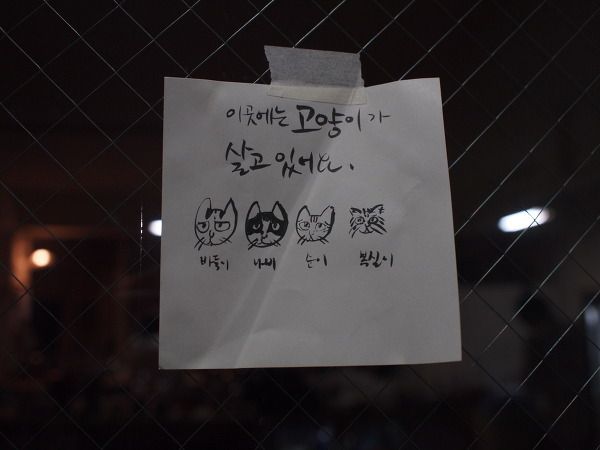 이곳에는 고양이가
살고 있어요.
바둘이 나비 순이 복실이